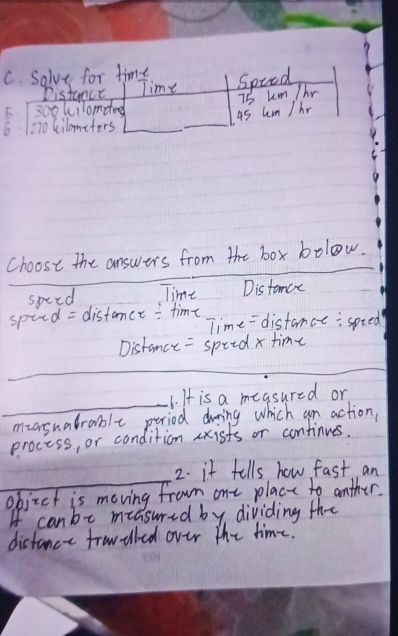 C. Solve for time
Distance Time Speed
5 300 kilometers 75 km/hr
6. 270 kilometers 45 km/hr
Choose the answers from the box below.
speed Time Distance
speed = distance ÷ time
Time = distance ÷ speed
Distance = speed x time
1. It is a measured or
measuarable period during which an action,
process, or condition exists or continues.
2. it tells how fast an
object is moving from one place to anther.
It can be measured by dividing the
distance travelled over the time.